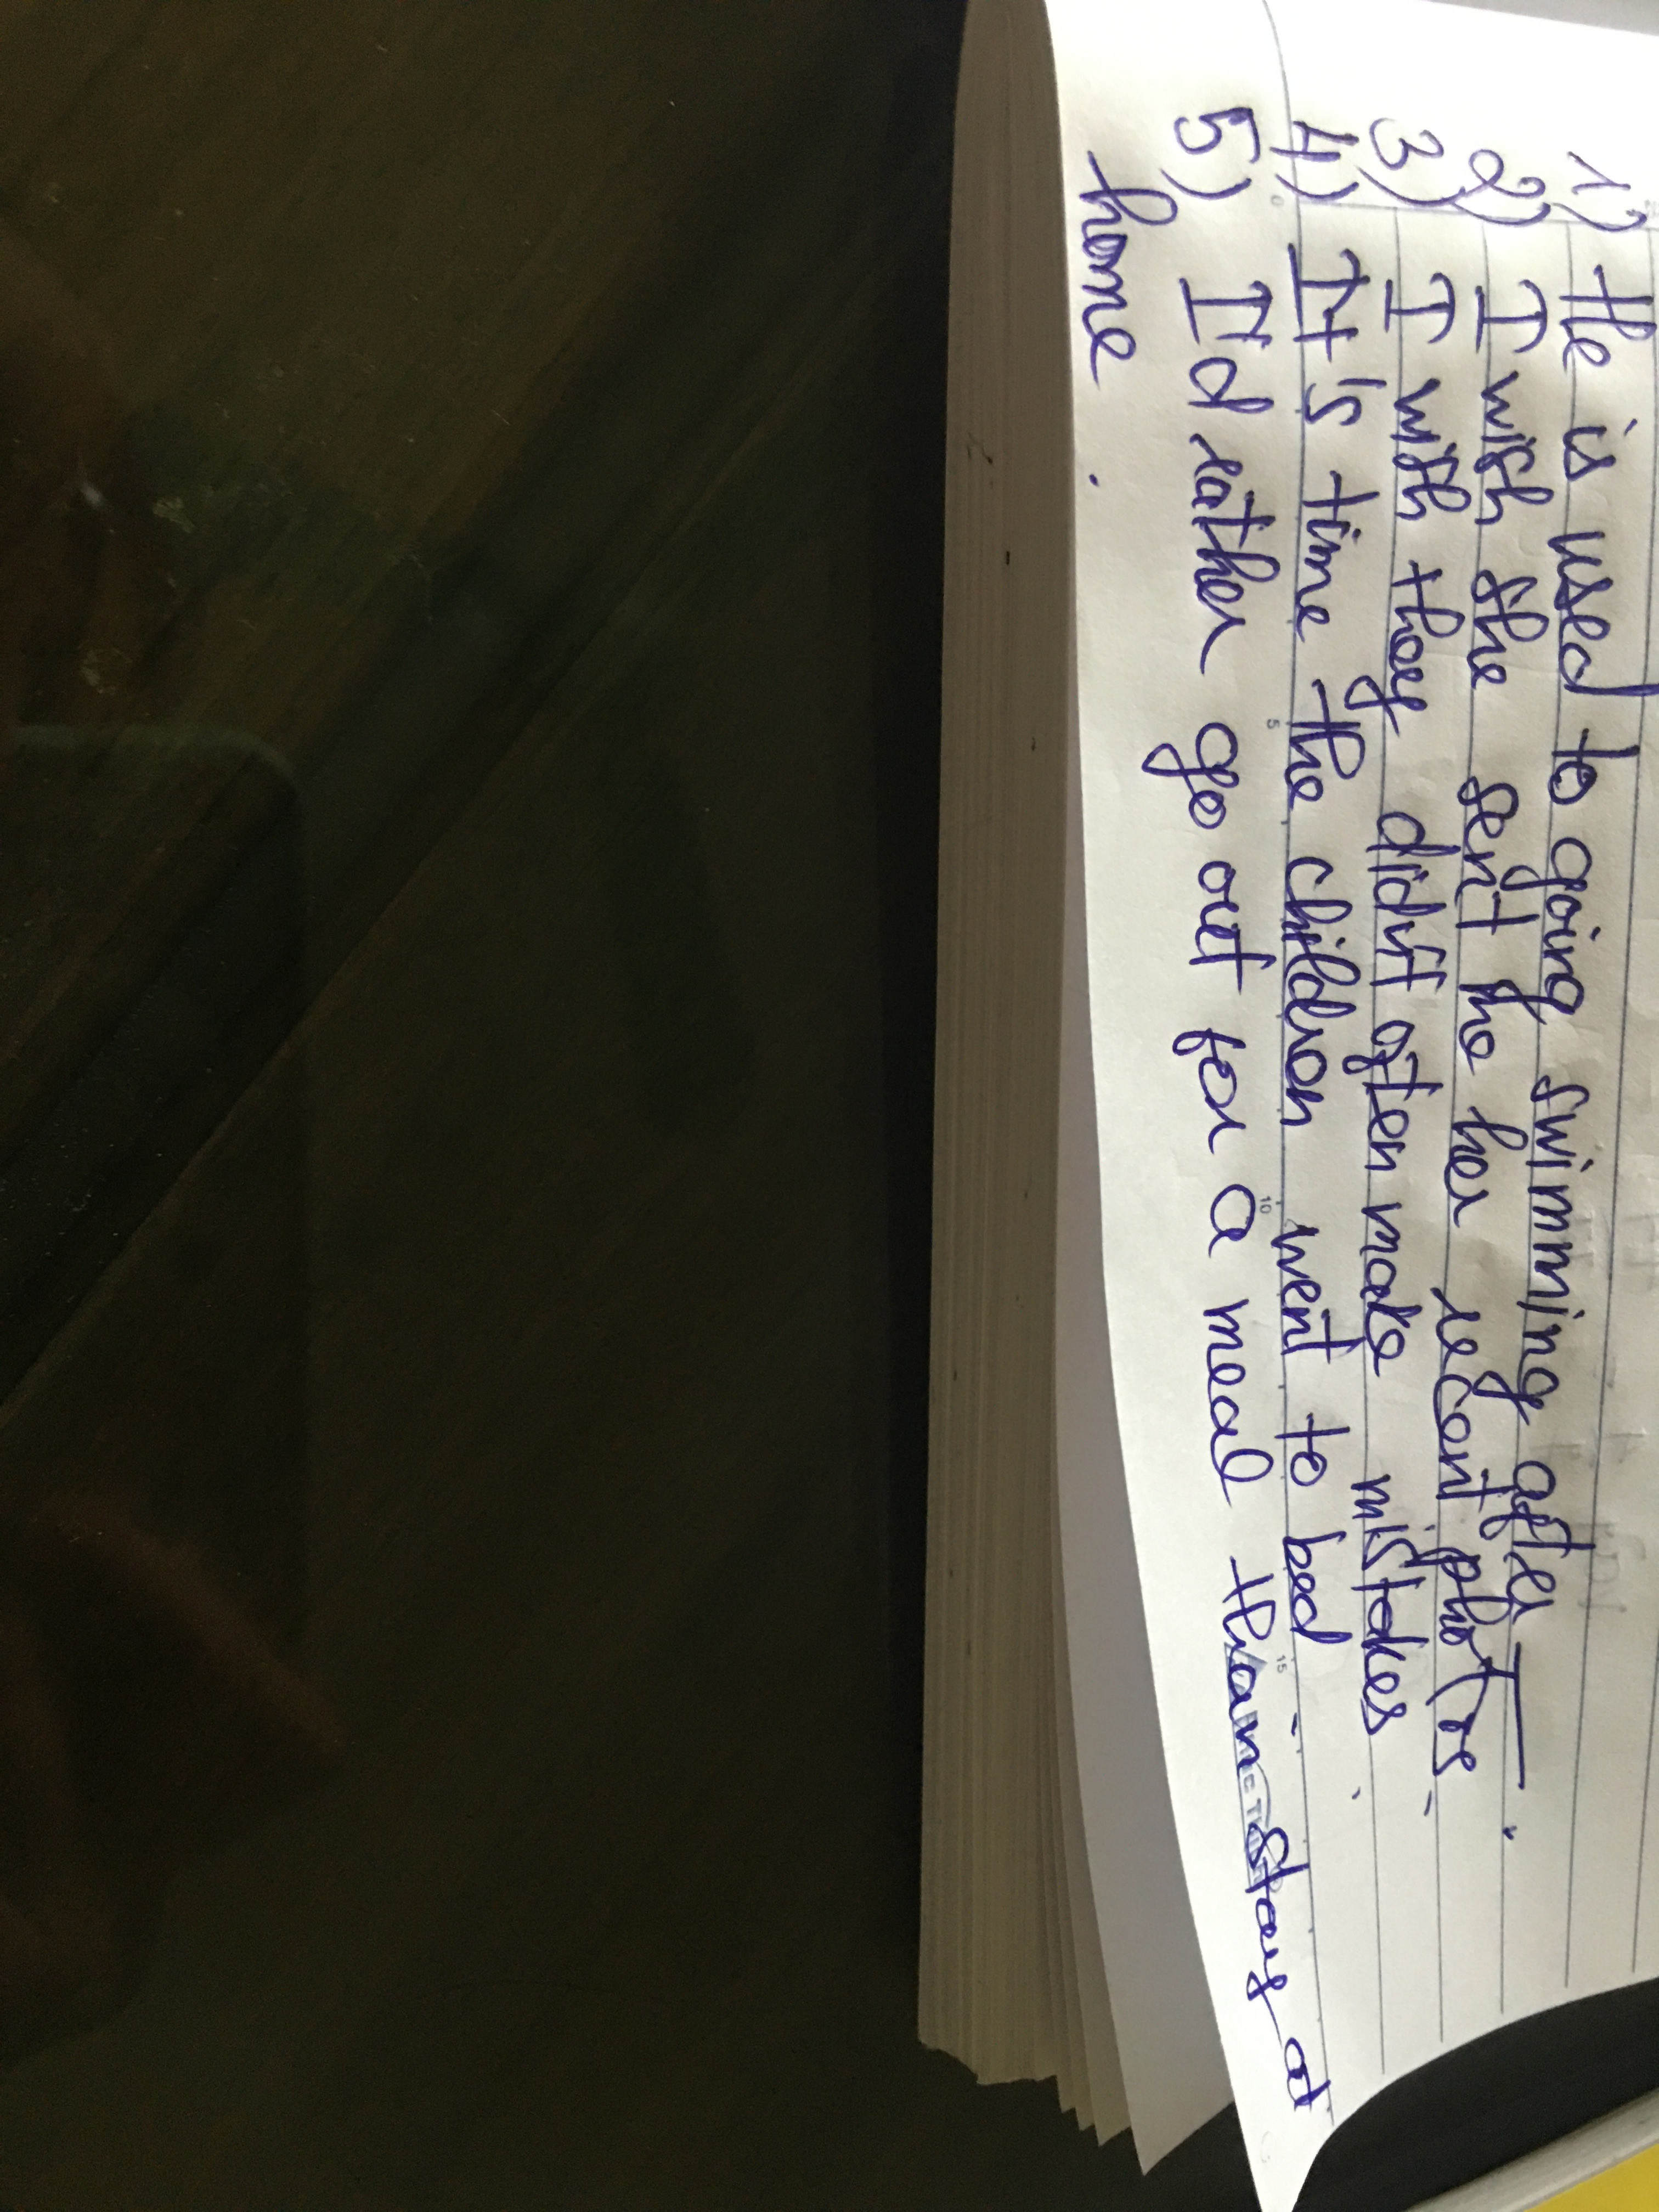 1) He is used to going swimming after ———.
2) I wish she sent me her recent photos.
3) I wish they didn't often make mistakes.
4) It's time the children went to bed.
5) I'd rather go out for a meal than stay at
home.